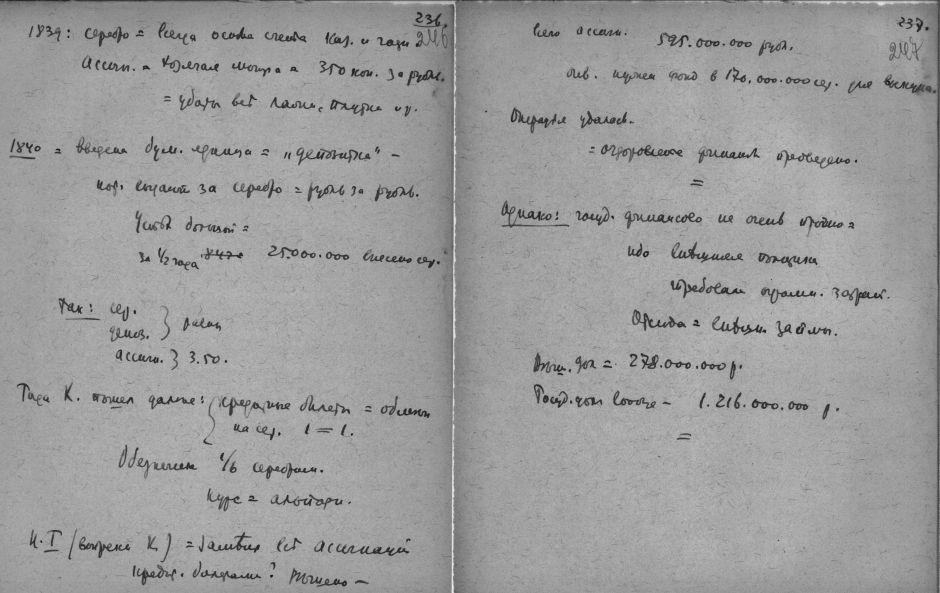 236.
246
1839: серебро = всюду основа счета каз. и
Ассигн. = 350 коп. за рубль.
= убыть всѣ лажи, и у.
1840 = введена бум. единица = „депозитка" –
за серебро = рубль за рубль.
Успѣх большой =
за 1/2 года 25.000.000 внесено сер.
Так: сер.
депоз. } равны
ассигн. } 3.50.
Тогда К. пошел далее: { кредитные билеты = обмен
на сер. 1 = 1.
Обезпечены 1/6 серебром.
Курс = альпари.
Н. I (вопреки К.) = замѣна всѣ ассигнаций
кредит. билетами? Рѣшено –
237.
247
Всего ассигн. 595.000.000 рубл.
нужен фонд в 170.000.000 сер. для выкупа.
Операция удалась.
= оздоровление финанс. проведено.
=
Однако: госуд. финансово не очень прочно =
ибо внѣшняя политика
требовала огромн. затрат.
Отсюда = внѣшн. займы.
Внѣш. долг = 278.000.000 р.
Госуд. долг вообще – 1.216.000.000 р.
=